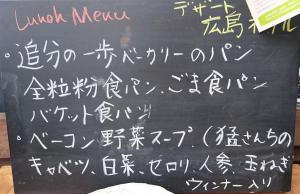 Lunch Menu
デザート
広島
・追分の一歩ベーカリーのパン
全粒粉食パン、ごま食パン
バケット食パン
・ベーコン野菜スープ（猛さんちの
キャベツ、白菜、セロリ、人参、玉ねぎ
ウィンナー入り